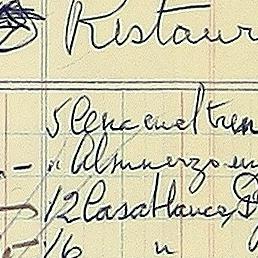 Restaur
5 Cena en el tren
" Almuerzo en
12 Casablanca, 
16 "